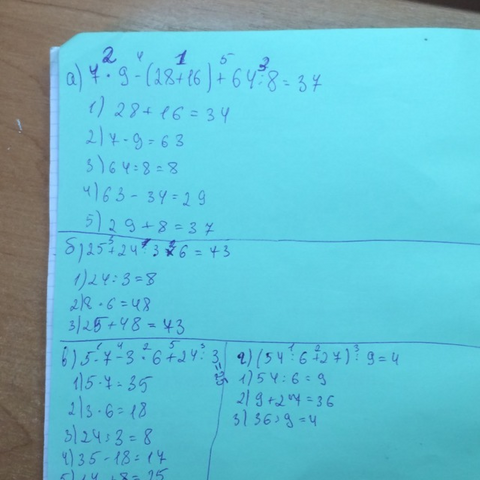 а) 7 · 9 - (28+16) + 64 : 8 = 37
1) 28 + 16 = 34
2) 7 · 9 = 63
3) 64 : 8 = 8
4) 63 - 34 = 29
5) 29 + 8 = 37
б) 25 + 24 : 3 · 6 = 73
1) 24 : 3 = 8
2) 8 · 6 = 48
3) 25 + 48 = 73
в) 5 · 7 - 3 · 6 + 24 : 3
1) 5 · 7 = 35
2) 3 · 6 = 18
3) 24 : 3 = 8
4) 35 - 18 = 17
5) 17 + 8 = 25
г) (54 : 6 + 27) : 9 = 4
1) 54 : 6 = 9
2) 9 + 27 = 36
3) 36 : 9 = 4